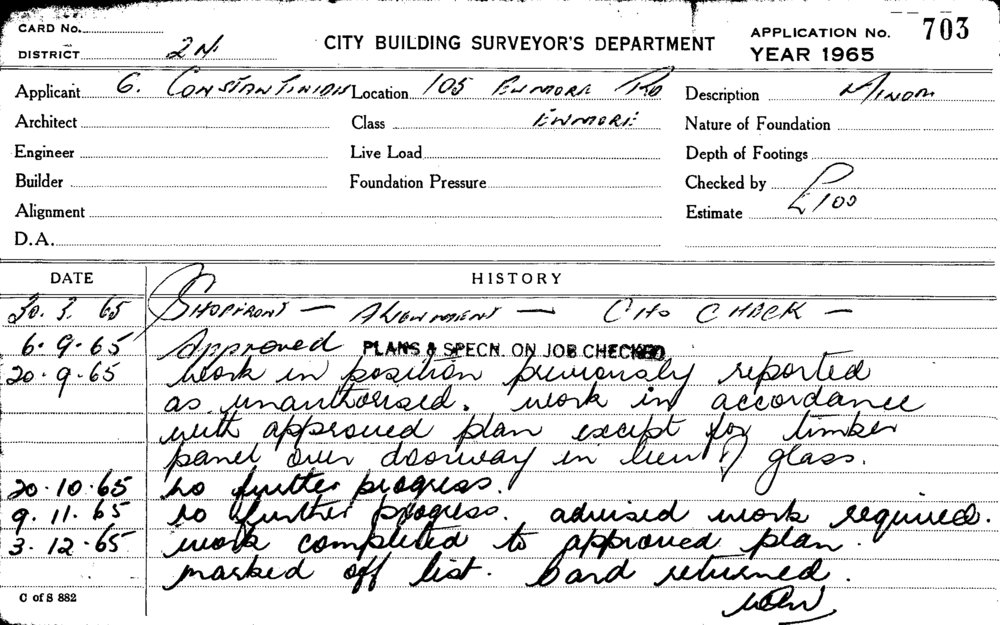 CARD No.
DISTRICT 2N.
CITY BUILDING SURVEYOR'S DEPARTMENT
APPLICATION No. 703
YEAR 1965
Applicant G. Location 105 Enmore Rd Description Minor
Architect Class Enmore Nature of Foundation
Engineer Live Load Depth of Footings
Builder Foundation Pressure Checked by
Alignment Estimate £100
D.A.
DATE HISTORY
30. 3. 65 Shopfront — Alignment — Check —
6·9·65 Approved PLANS & SPECN. ON JOB CHECKED
20·9·65 Work in position previously reported
as unauthorised. work in accordance
with approved plan except for timber
panel over doorway in lieu of glass.
20·10·65 no further progress.
9.11.65 no further progress. advised work required.
3·12·65 work completed to approved plan.
marked off list. Card returned.
C of S 882